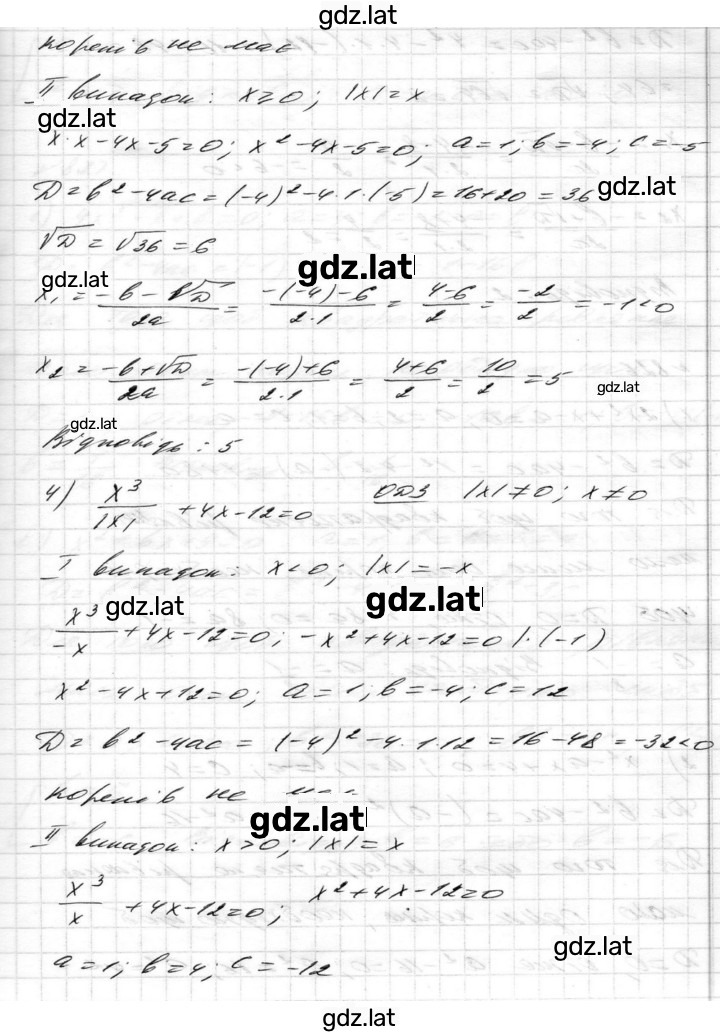 gdz.lat
коренів не має
II випадок: x≥0; |x|=x
gdz.lat
x·x-4x-5=0; x²-4x-5=0; a=1; b=-4; c=-5
D=b²-4ac=(-4)²-4·1·(-5)=16+20=36 gdz.lat
√D=√36=6
gdz.lat gdz.lat
x₁=(-b-√D)/2a=(-(-4)-6)/2·1=(4-6)/2=-2/2=-1<0
x₂=(-b+√D)/2a=(-(-4)+6)/2·1=(4+6)/2=10/2=5
gdz.lat
gdz.lat
Відповідь: 5
4) x³/|x|+4x-12=0 ОДЗ |x|≠0; x≠0
I випадок: x<0; |x|=-x
gdz.lat gdz.lat
x³/-x+4x-12=0; -x²+4x-12=0 |·(-1)
x²-4x+12=0; a=1; b=-4; c=12
D=b²-4ac=(-4)²-4·1·12=16-48=-32<0
коренів не
gdz.lat
II випадок: x>0; |x|=x
x³/x+4x-12=0; x²+4x-12=0
gdz.lat
a=1; b=4; c=-12
gdz.lat